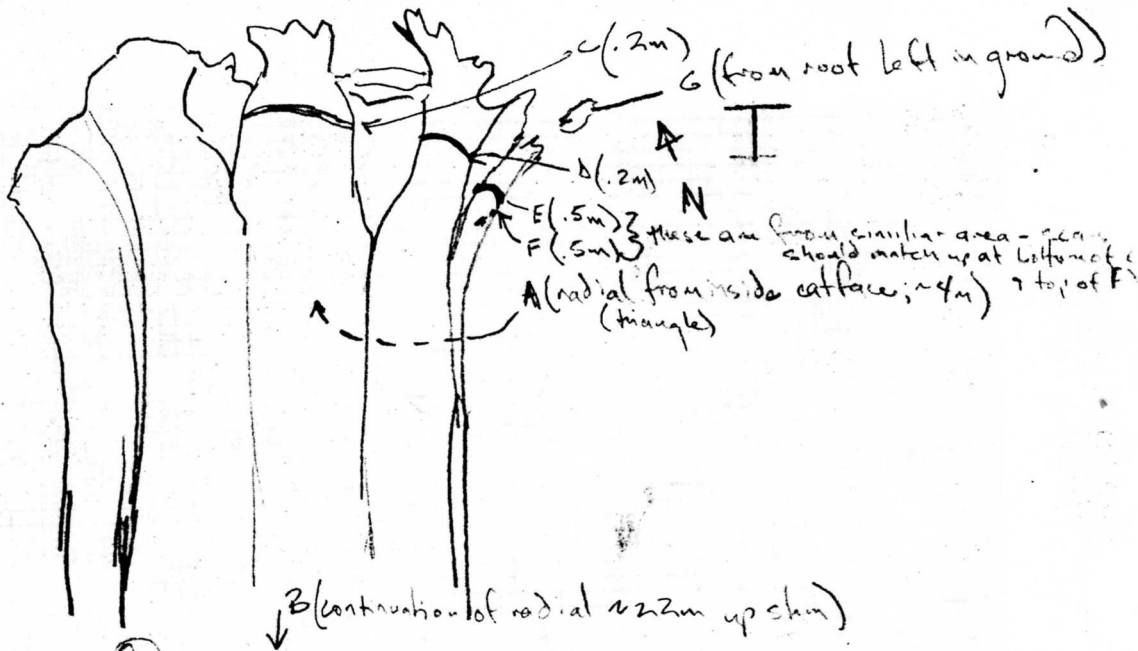 C (.2m)
G (from root left in ground)
D (.2m)
N
E (.5m) } these are from similiar area -
F (.5m) } should match up at bottom of
top of F
A (radial from inside catface; ~4m)
(triangle)
B (continuation of radial ~22m up stem)